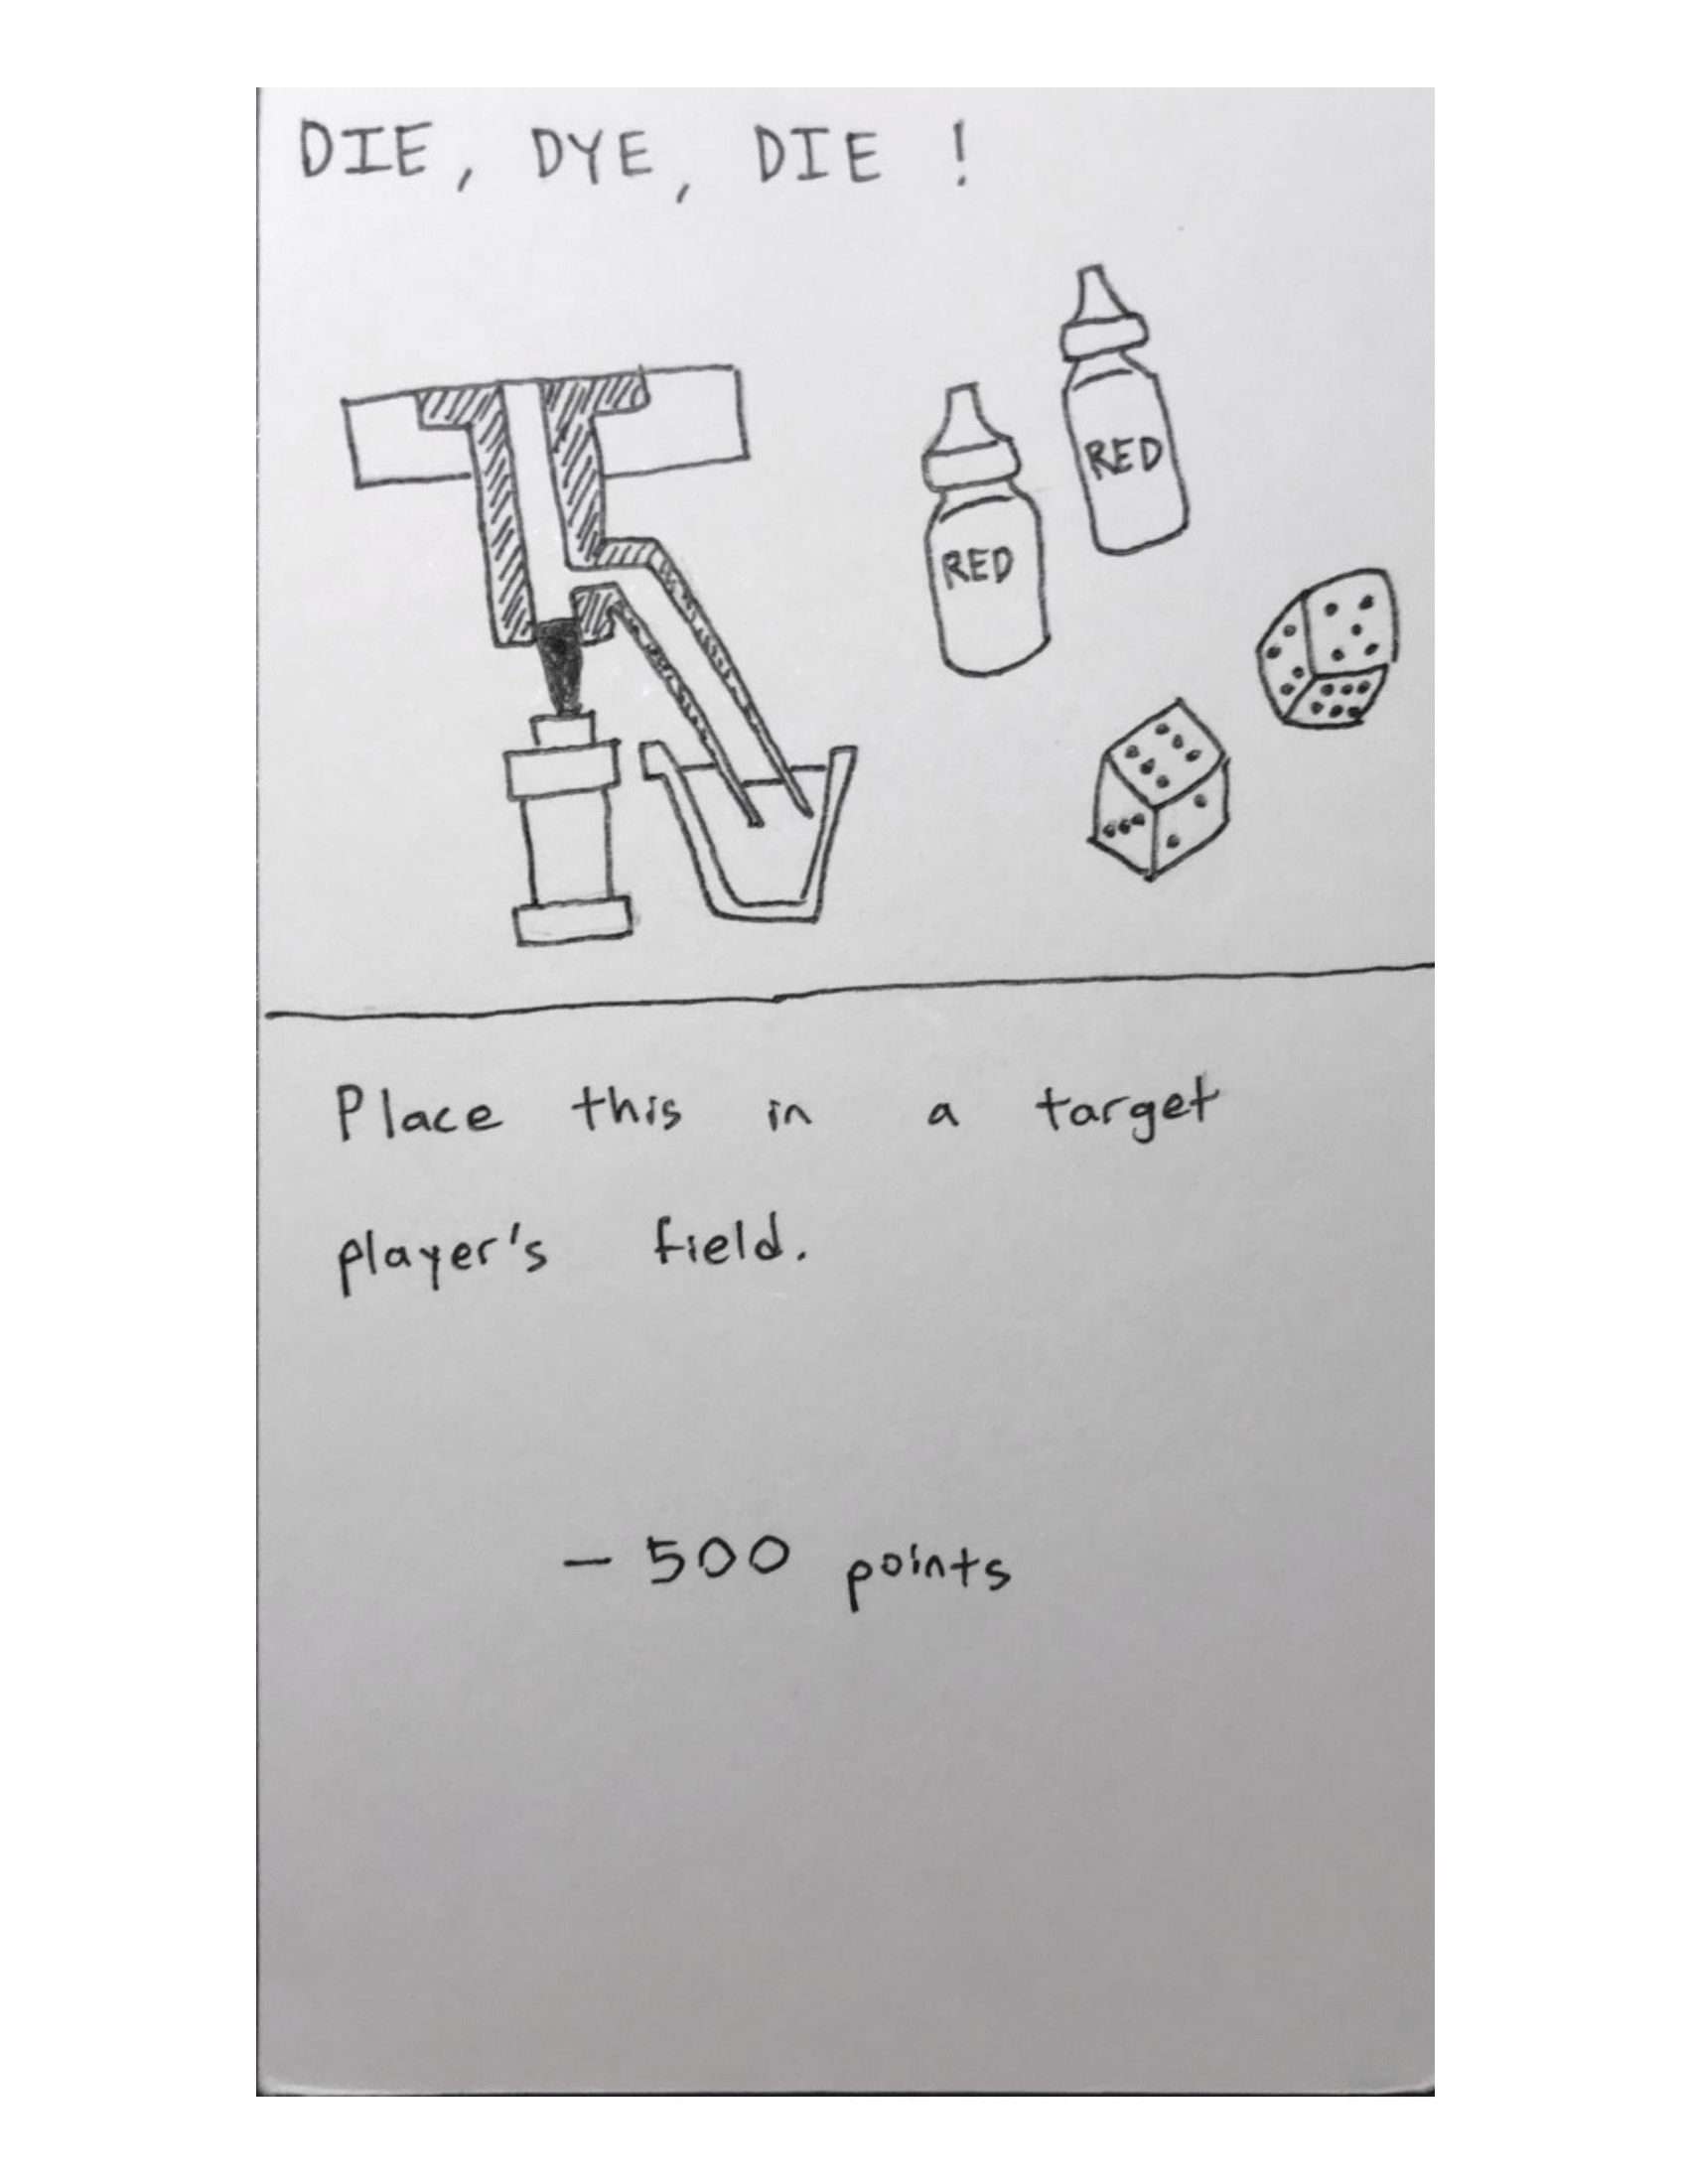 DIE, DYE, DIE !
RED
RED
Place this in a target
player's field.
- 500 points